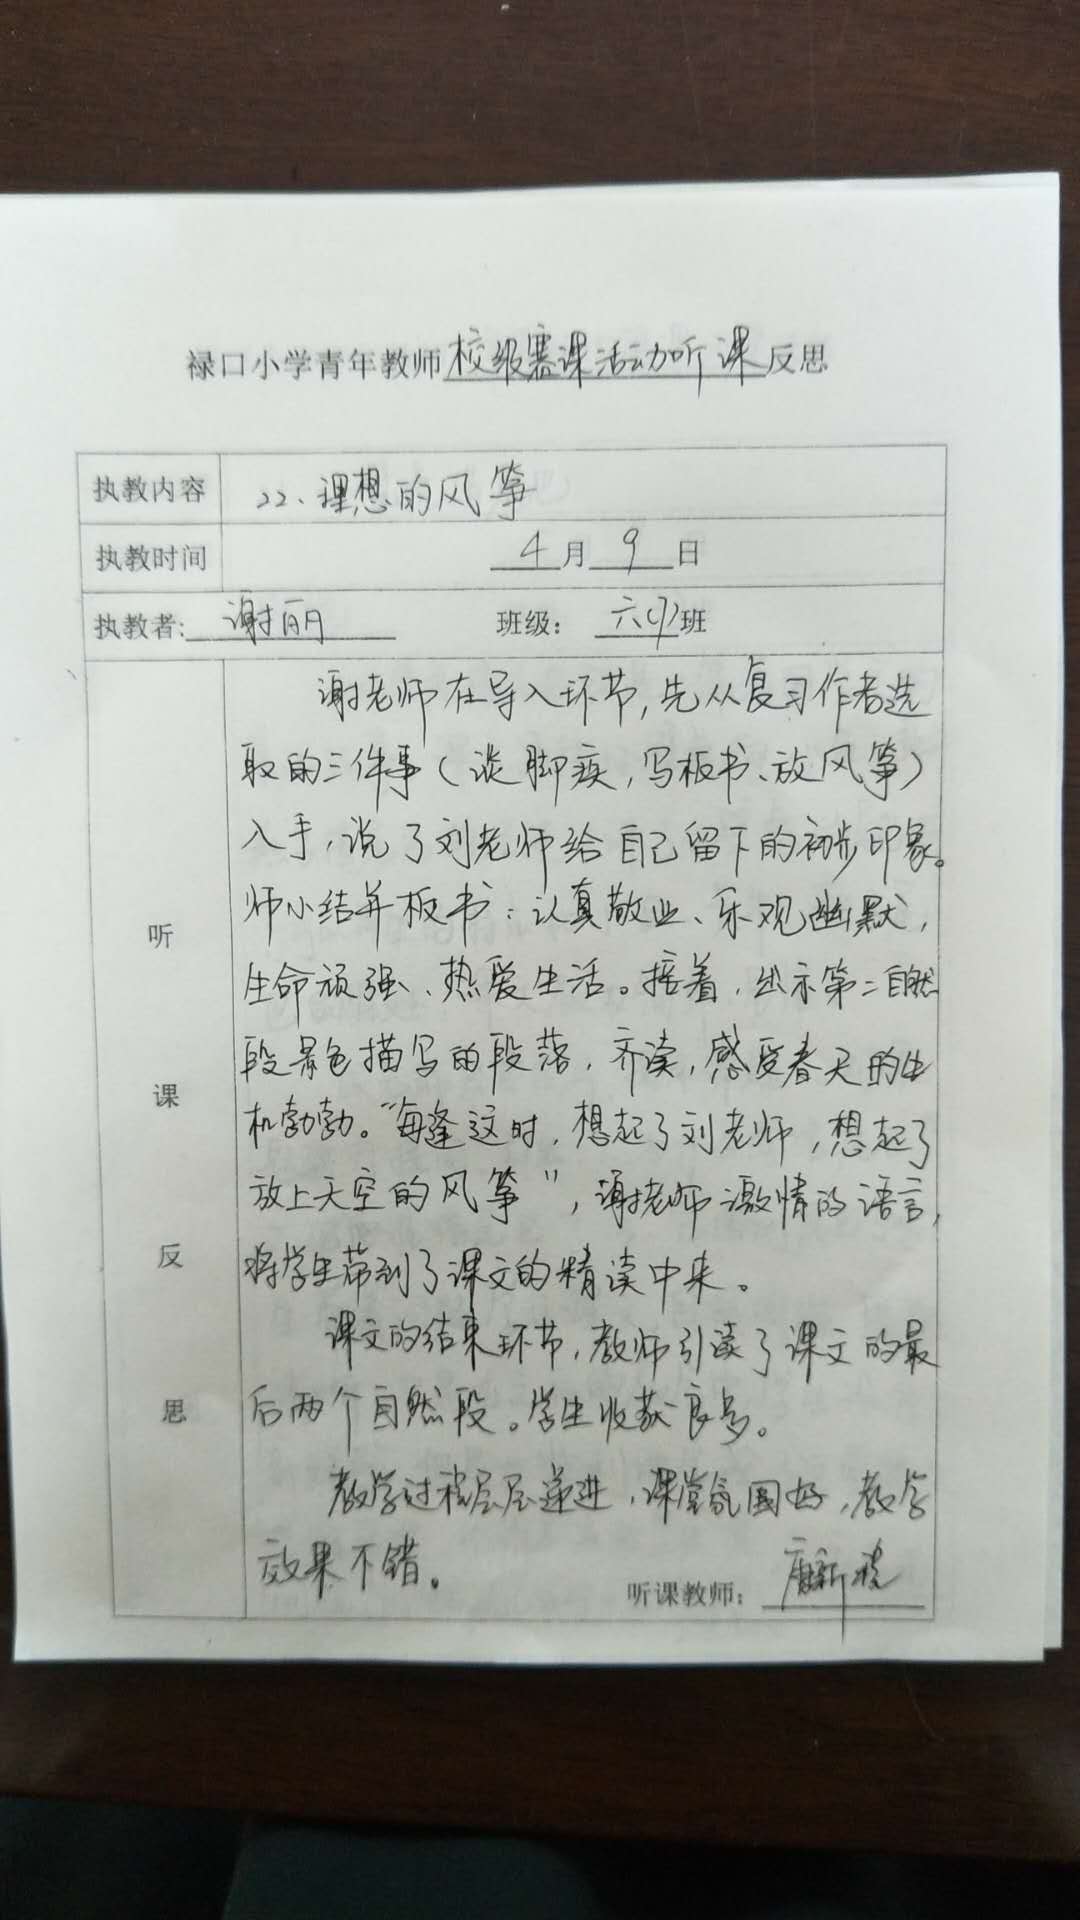 禄口小学青年教师校级赛课活动听课反思
执教内容 22、理想的风筝
执教时间 4月9日
执教者: 谢丽 班级: 六班
听课反思
谢老师在导入环节,先从复习作者选
取的三件事(谈脚疾,写板书、放风筝)
入手,说了刘老师给自己留下的初步印象。
师小结并板书:认真敬业、乐观幽默,
生命顽强、热爱生活。接着,出示第二自然
段景色描写的段落,齐读,感受春天的生
机勃勃。“每逢这时,想起了刘老师,想起了
放上天空的风筝”,谢老师激情的语言,
将学生带到了课文的精读中来。
课文的结束环节,教师引读了课文的最
后两个自然段。学生收获良多。
教学过程层层递进,课堂氛围好,教学
效果不错。
听课教师: